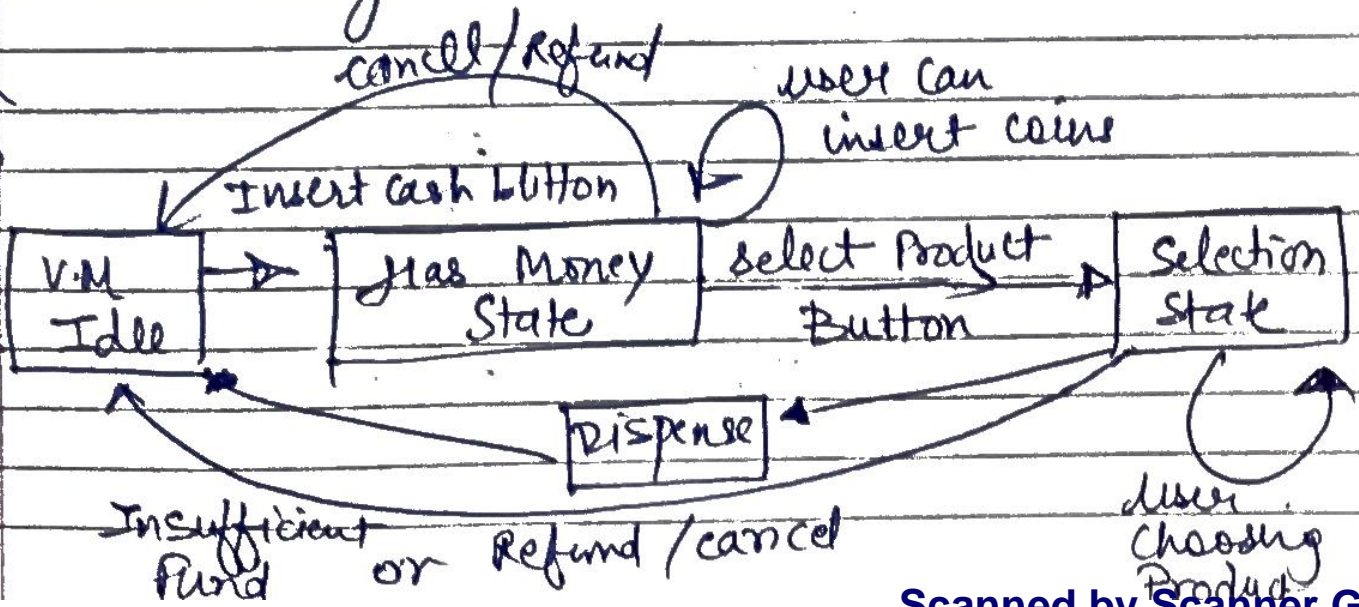 cancel/Refund
user can
insert coins
Insert Cash button
V.M
Idle
Has Money
State
select Product
Button
Selection
State
Dispense
Insufficient
Fund
or Refund/cancel
User
Choosing
Product
Scanned by Scanner G